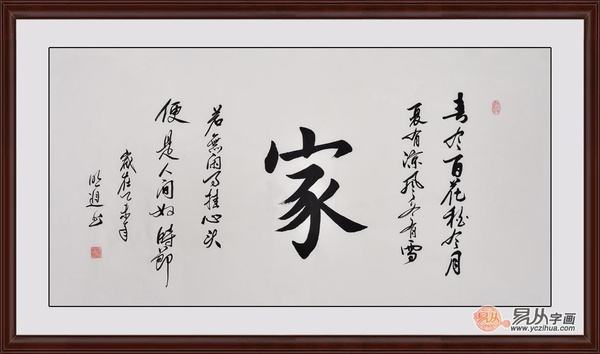 春有百花秋有月
夏有凉风冬有雪
家
若無闲事挂心头
便是人间好時節
歲在乙未年
易从字画
www.yczihua.com